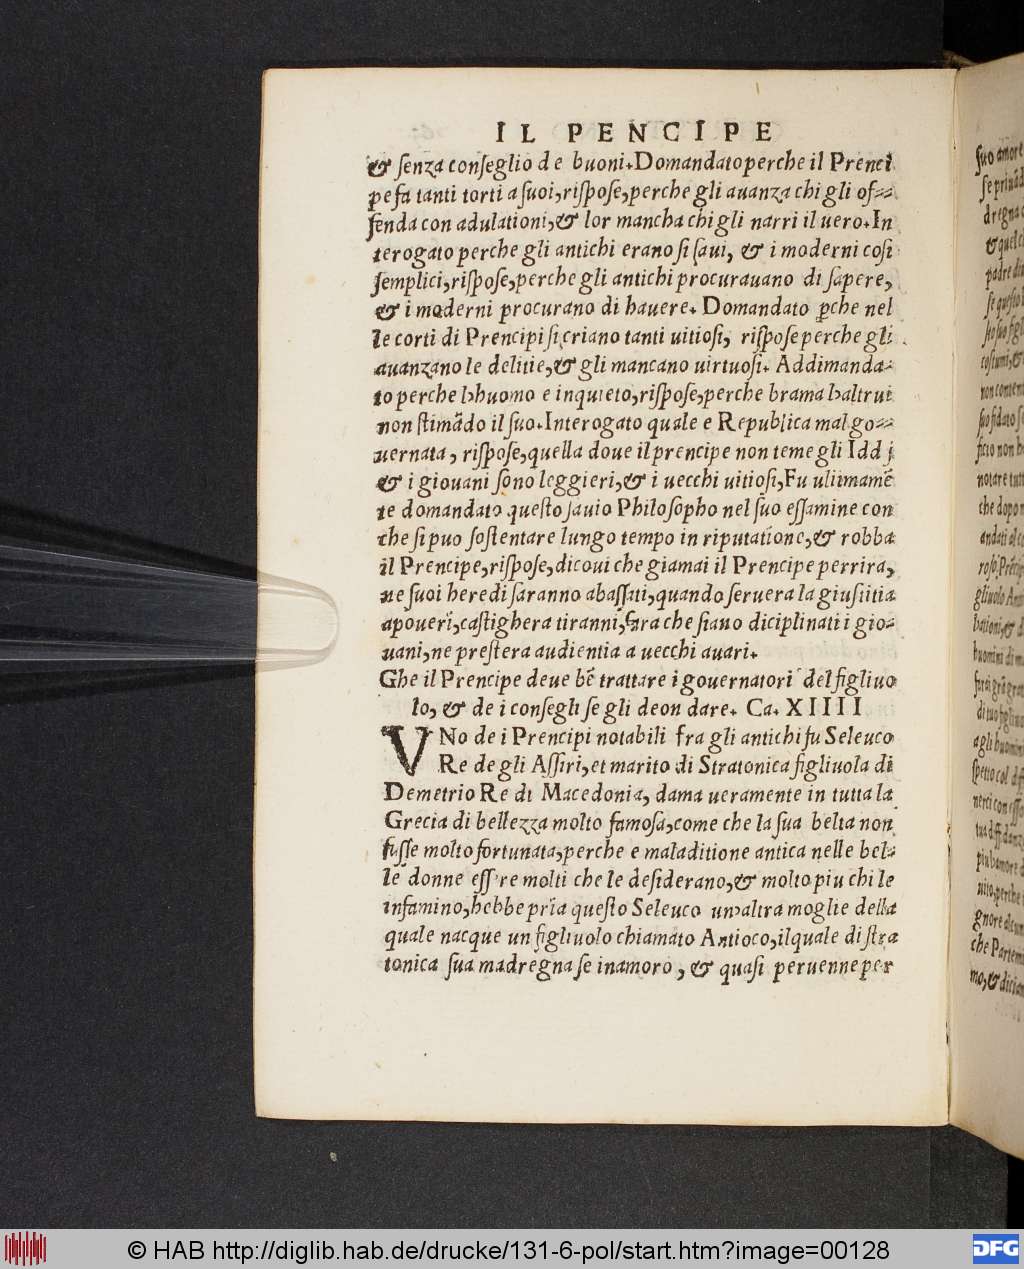 IL PENCIPE
& senza conseglio de buoni. Domandato perche il Prenci
pe fa tanti torti a suoi, rispose, perche gli auanza chi gli of=
fenda con adulationi, & lor mancha chi gli narri il uero. In
terogato perche gli antichi erano si saui, & i moderni cosi
semplici, rispose, perche gli antichi procurauano di sapere,
& i moderni procurano di hauere. Domandato ꝑche nel
le corti di Prencipi si criano tanti uitiosi, rispose perche gli
auanzano le delitie, & gli mancano uirtuosi. Addimanda=
to perche lhuomo e inquieto, rispose, perche brama laltrui
non stimãdo il suo. Interogato quale e Republica mal go=
uernata, rispose, quella doue il prencipe non teme gli Iddi
& i giouani sono leggieri, & i uecchi uitiosi, Fu ultimamẽ
te domandato questo sauio Philosopho nel suo essamine con
che si puo sostentare lungo tempo in riputatione, & robba
il Prencipe, rispose, dicoui che giamai il Prencipe perrira,
ne suoi heredi saranno abassati, quando seruera la giustitia
a poueri, castighera tiranni, fara che siano diciplinati i gio=
uani, ne prestera audientia a uecchi auari.
Che il Prencipe deue bẽ trattare i gouernatori del figliuo
lo, & de i consegli se gli deon dare. Ca. XIIII
VNo de i Prencipi notabili fra gli antichi fu Seleuco
Re de gli Assiri, et marito di Stratonica figliuola di
Demetrio Re di Macedonia, dama ueramente in tutta la
Grecia di bellezza molto famosa, come che la sua belta non
fusse molto fortunata, perche e maladitione antica nelle bel=
le donne essere molti che le desiderano, & molto piu chi le
infamino, hebbe pria questo Seleuco unaltra moglie della
quale nacque un figliuolo chiamato Antioco, ilquale di stra
tonica sua madregna se inamoro, & quasi peruenne per
© HAB http://diglib.hab.de/drucke/131-6-pol/start.htm?image=00128
DFG